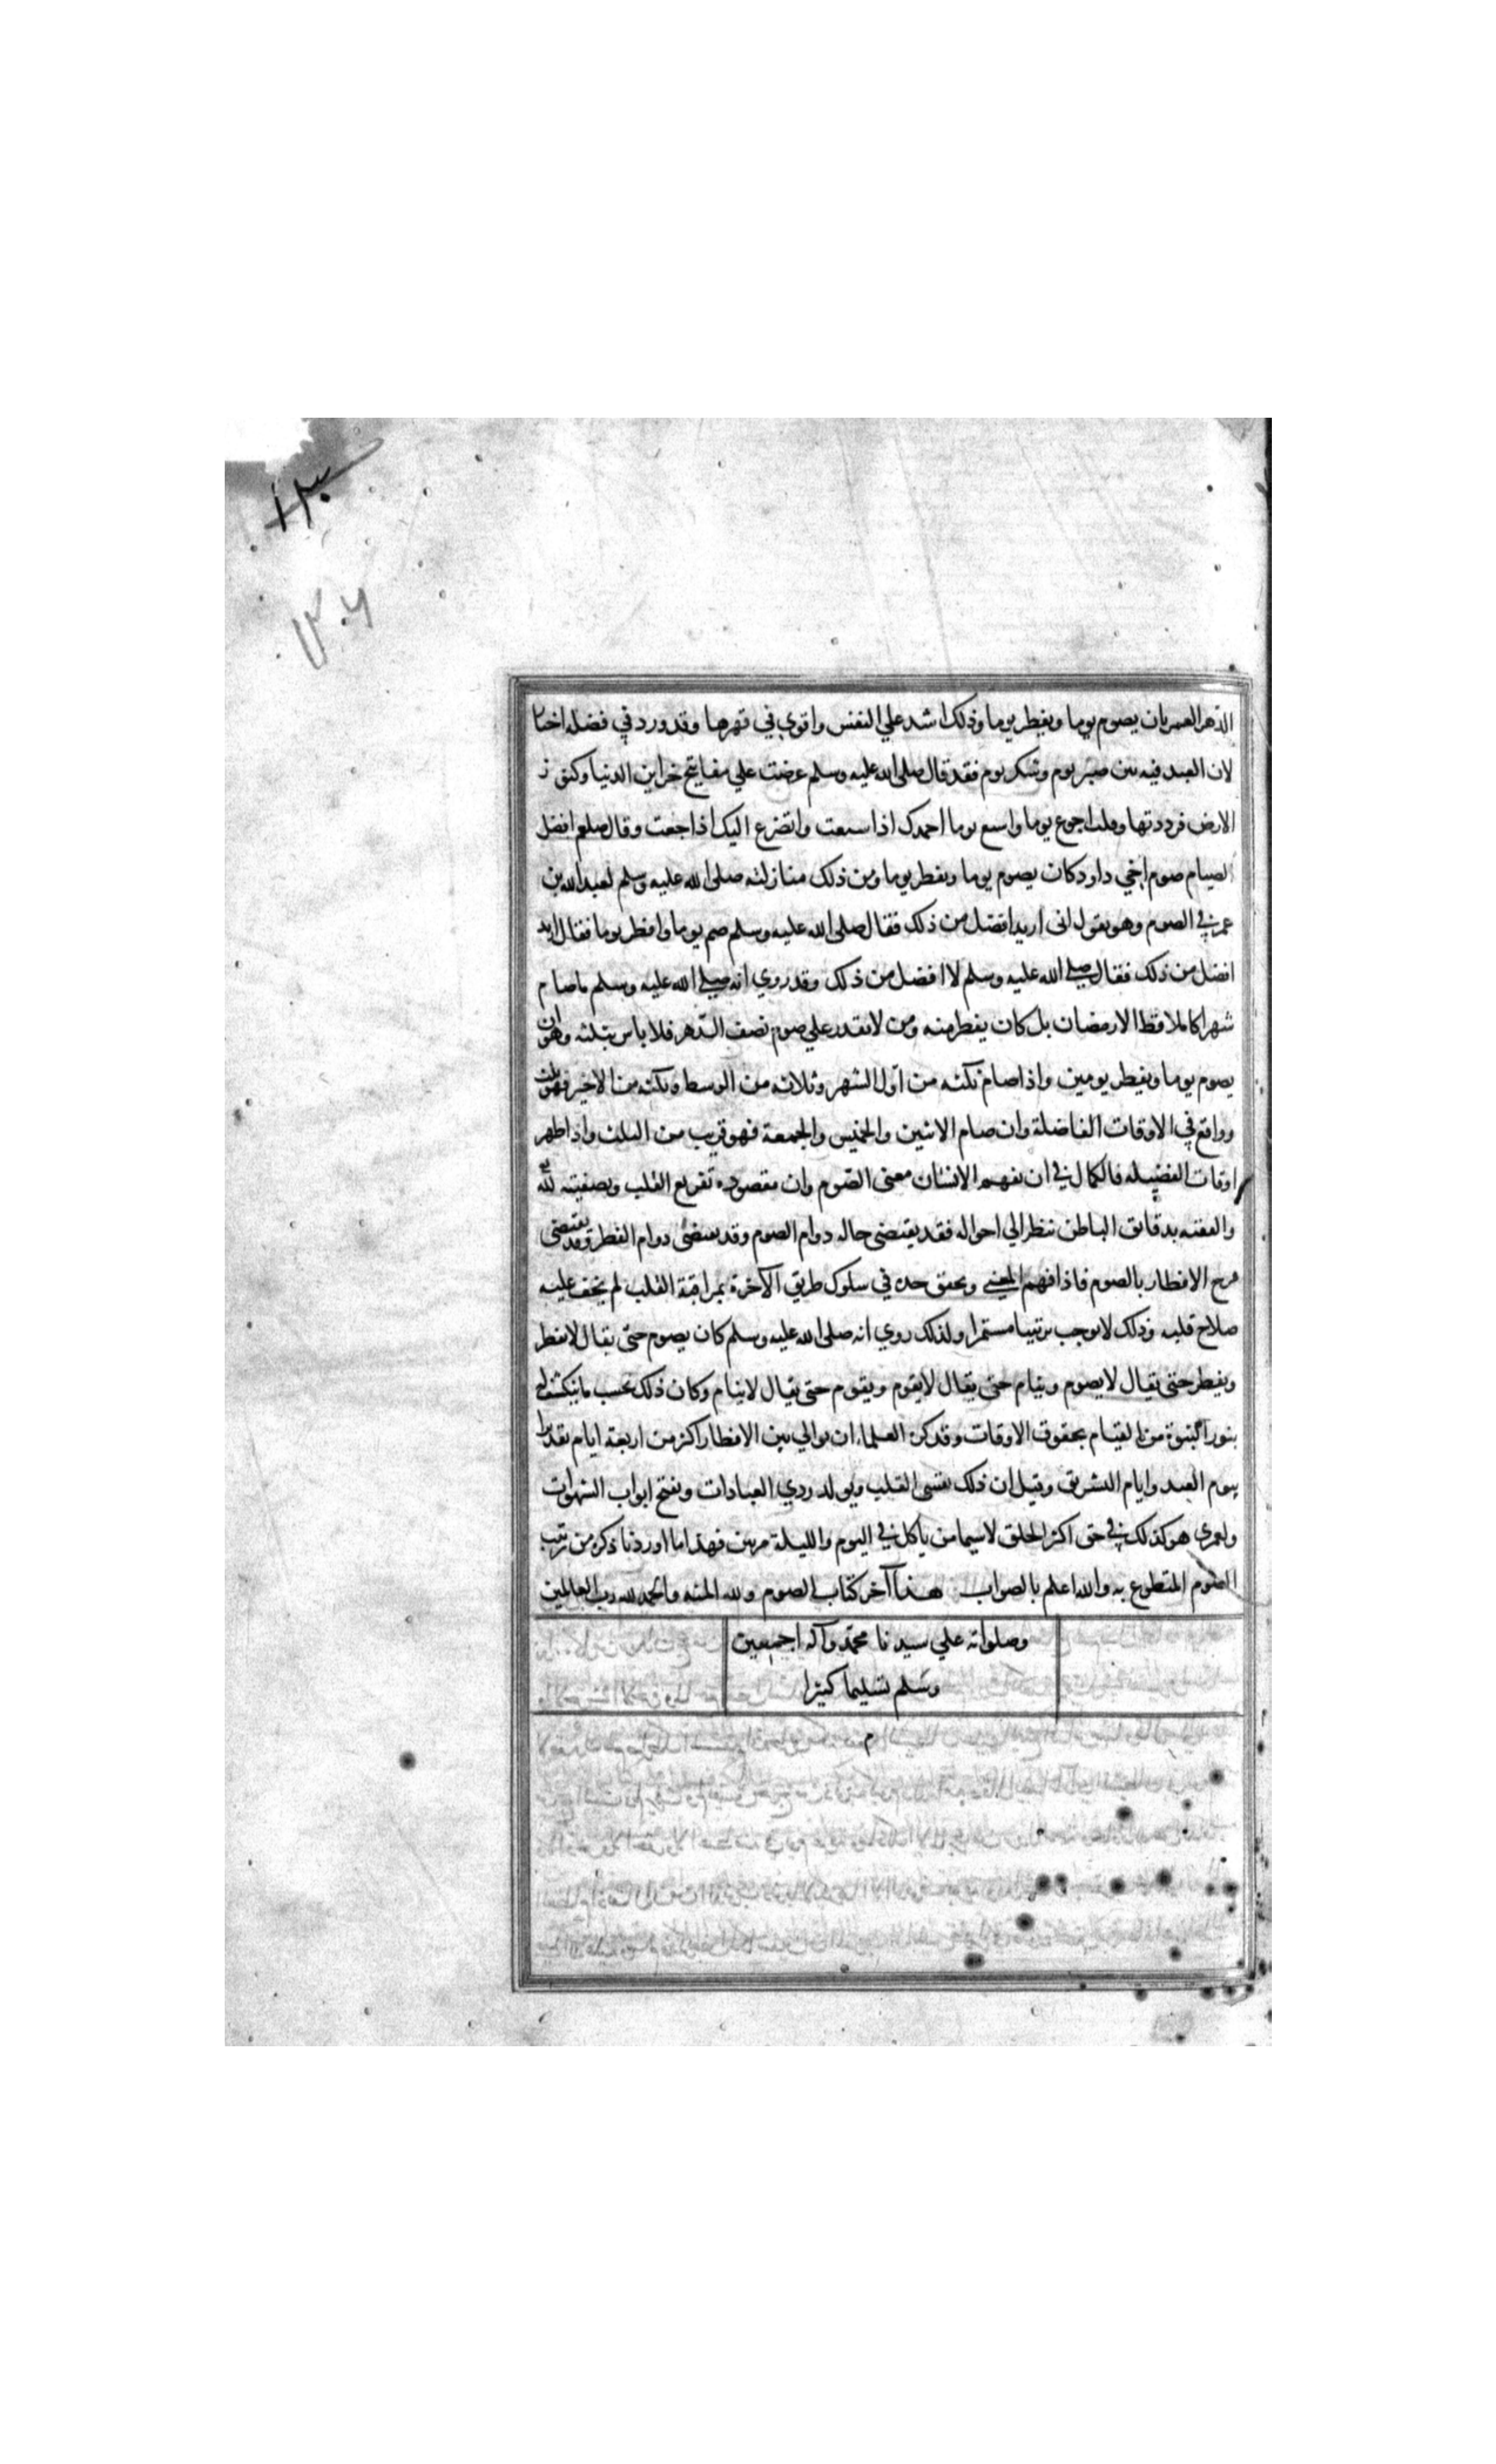 ١٣٠
١٣٠٦
الدهر العمر بان يصوم يوما ويفطر يوما وذلك اشد علي النفس واقوي في قهرها وقد ورد في فضله اخبا
لان العبد فيه بين صبر يوم وشكر يوم فقد قال صلى الله عليه وسلم عرضت علي مفاتيح خزاين الدنيا وكنو ز
الارض فرددتها وقلت اجوع يوما واشبع يوما احمدك اذا شبعت واتضرع اليك اذا جعت وقال صلعم افضل
الصيام صوم اخي داود كان يصوم يوما ويفطر يوما ومن ذلك منازلته صلى الله عليه وسلم لعبد الله بن
عمر في الصوم وهو يقول انى اريد افضل من ذلك فقال صلى الله عليه وسلم صم يوما وافطر يوما فقال اريد
افضل من ذلك فقال صلى الله عليه وسلم لا افضل من ذلك وقد روي انه صلى الله عليه وسلم ما صام
شهرا كاملا قط الا رمضان بل كان يفطر منه ومن لا يقدر علي صوم نصف الدهر فلا باس بثلثه وهو ان
يصوم يوما ويفطر يومين واذا صام ثلثه من اول الشهر وثلاثه من الوسط وثلثه من الاخير فهو ثلث
وواقع في الاوقات الفاضلة وان صام الاثنين والخميس والجمعة فهو قريب من الثلث واذا ظهر
اوقات الفضيله فالكمال في ان يفهم الانسان معنى الصوم وان مقصوده تفريغ القلب وتصفيته لله
والفقه بدقايق الباطن ينظر الي احواله فقد يقتضى حاله دوام الصوم وقد يقتضى دوام الفطر وقد يقتضى
مزج الافطار بالصوم فاذا فهم المعنى وتحقق حده في سلوك طريق الآخرة بمراقبة القلب لم يخف عليه
صلاح قلبه وذلك لا يوجب ترتيبا مستمرا ولذلك روي انه صلى الله عليه وسلم كان يصوم حتى يقال لا يفطر
ويفطر حتى يقال لا يصوم وينام حتى يقال لا يقوم ويقوم حتى يقال لا ينام وكان ذلك بحسب ما ينكشف له
بنور النبوة من القيام بحقوق الاوقات وقد كره العلماء ان يوالي بين الافطار اكثر من اربعة ايام تقديرا
بيوم العيد وايام التشريق وقيل ان ذلك يقسى القلب ويولد ردي العادات ويفتح ابواب الشهوات
ولعمرى هو كذلك في حق اكثر الخلق لا سيما من ياكل في اليوم والليلة مرتين فهذا ما اوردنا ذكره من ترتيب
الصوم المتطوع به والله اعلم بالصواب هذا آخر كتاب الصوم ولله المنه والحمد لله رب العالمين
وصلواته علي سيدنا محمد وآله اجمعين
وسلم تسليما كثيرا
م